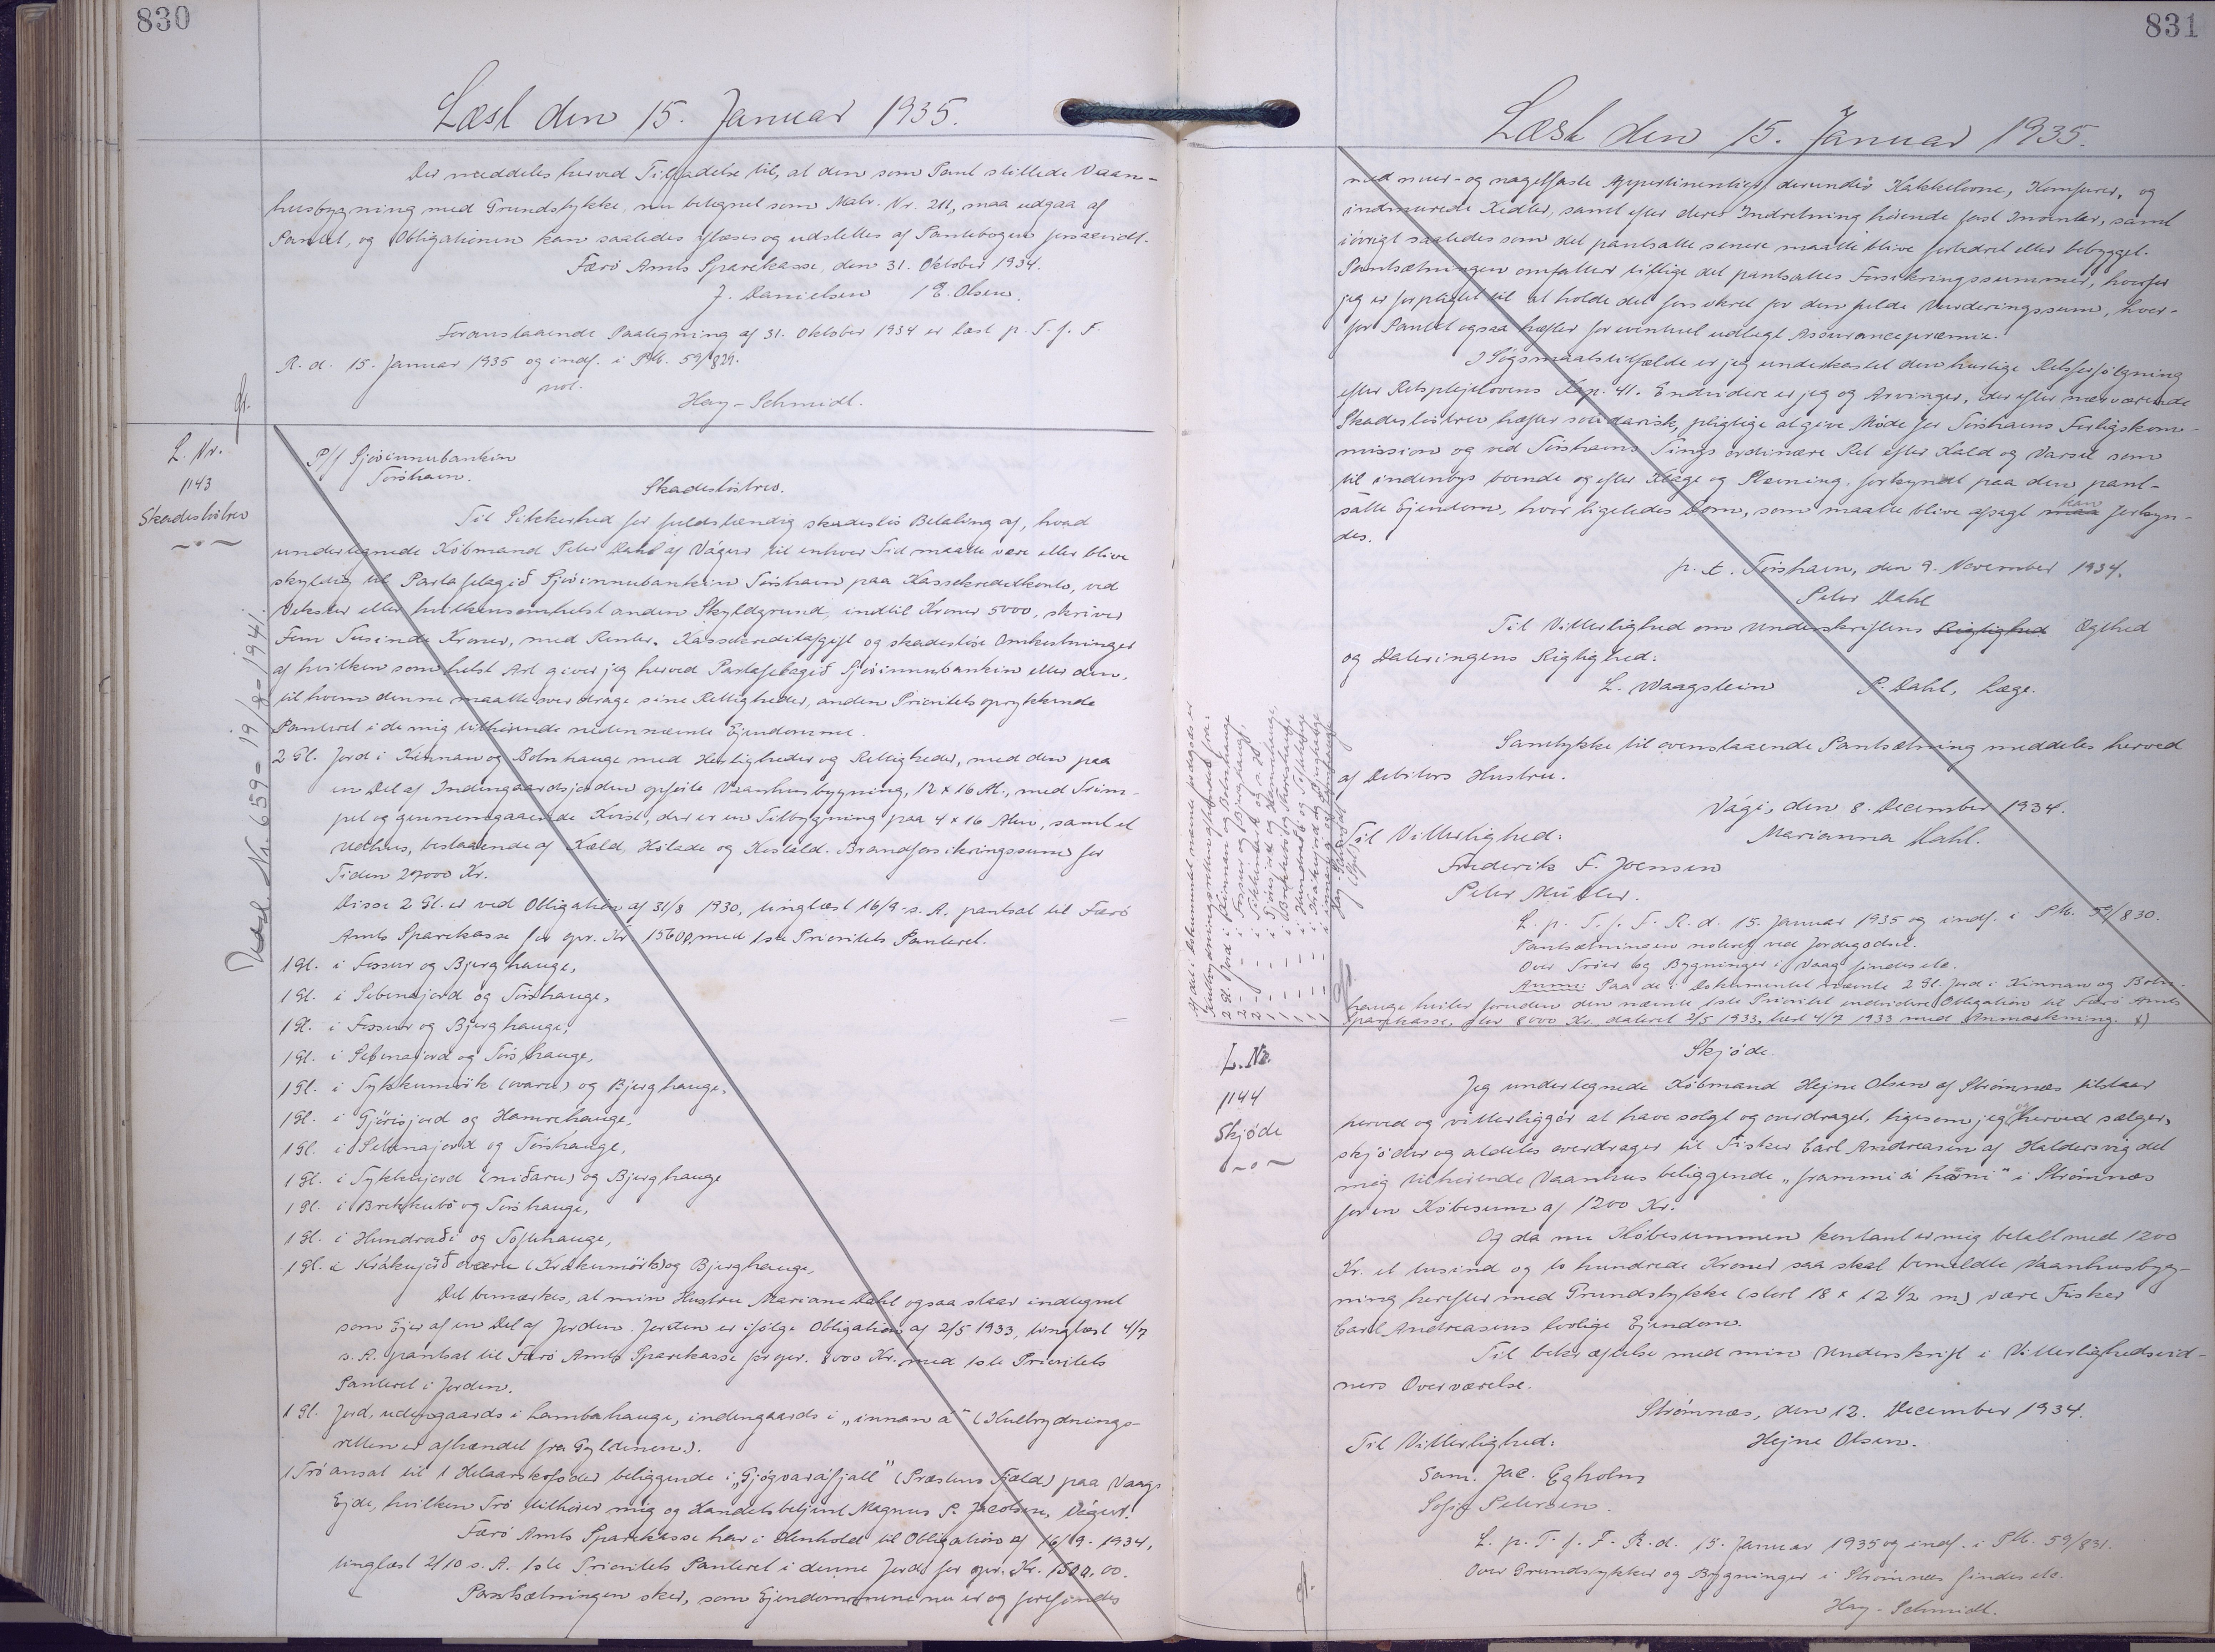 830
Læst den 15. Januar 1935.
Der meddeles herved Tilladelse til, at den som Pant stillede Vaan-
husbygning med Grundstykke, nu betegnet som Matr. Nr. 211, maa udgaa af
Pantet, og Obligationen kan saaledes aflæses og udslettes af Pantebogen forsaavidt.
Færö Amts Sparekasse, den 31. Oktober 1934.
J. Danielsen / E. Olsen.
Foranstaaende Paategning af 31. Oktober 1934 er læst p. T. f. F.
R. d. 15. Januar 1935 og indf. i PM. 59/829.
not.
Hay-Schmidt.
L. Nr.
1143
Skadesløsbrev
Udsl. Nr. 659 - 19/8 - 1941.
P/f Sjóvinnubankin
Tórshavn.
Skadeslösbrev.
Til Sikkerhed for fuldstændig skadeslös Betaling af, hvad
undertegnede Köbmand Peter Dahl af Vágur til enhver Tid maatte være eller blive
skyldig til Partafelagið Sjóvinnubankin Tórshavn paa Kassekreditkonto, ved
Veksler eller hvilkensomhelst anden Skyldgrund, indtil Kroner 5000, skriver
Fem Tusinde Kroner, med Renter, Kassekreditafgift og skadeslöse Omkostninger
af hvilken som helst Art giver jeg herved Partafelagið Sjóvinnubankin eller den,
til hvem denne maatte overdrage sine Rettigheder, anden Prioritets oprykkende
Panteret i de mig tilhörende nedennævnte Ejendomme.
2 Gl. Jord i Kinnan og Botnhauge med Herligheder og Rettigheder, med den paa
en Del af Indengaardsjorden opförte Vaanhusbygning, 12 x 16 Al., med Trim-
pel og gennemgaaende Kvist, der er en Tilbygning paa 4 x 16 Alen, samt et
Udhus, bestaaende af Kæld, Hölade og Kostald. Brandforsikringssum for
Tiden 27000 Kr.
Disse 2 Gl. er ved Obligation af 31/8 1930, tinglæst 16/9 s. A. pantsat til Færö
Amts Sparekasse for opr. Kr 15600 med 1ste Prioritets Panteret.
1 Gl. i Fossur og Bjerghauge,
1 Gl. i Sebinajord og Torshauge,
1 Gl. i Fossur og Bjerghauge,
1 Gl. i Sebinajord og Torshauge,
1 Gl. i Tykkumörk (ovaru) og Bjerghauge,
1 Gl. i Gjörisjord og Hamrehauge,
1 Gl. i Sebinajord og Torshauge,
1 Gl. i Tykkujord (niðaru) og Bjerghauge
1 Gl. i Brekkubö og Torshauge,
1 Gl. i Hundraði og Toftehauge,
1 Gl. i Krákujörð ovaru (Krákumörk) og Bjerghauge,
Det bemærkes, at min Hustru Mariane Dahl ogsaa staar indtegnet
som Ejer af en Del af Jorden. Jorden er ifölge Obligation af 2/5 1933, tinglæst 4/7
s. A. pantsat til Færö Amts Sparekasse for opr. 8000 Kr. med 1ste Prioritets
Panteret i Jorden.
1 Gl. Jord, udengaards i Lambahauge, indengaards i „innan á“ (Kulbrydnings-
retten er afhændet fra Gyldenen).
1 Trö ansat til 1 Helaarskofoder beliggende i „Gjógvaráfjall“ (Præstens Fjæld) paa Vaags
Ejde, hvilken Trö tilhörer mig og Handelsbetjent Magnus P. Jacobsen, Vágur.
Færö Amts Sparekasse har i Henhold til Obligation af 16/9. 1934,
tinglæst 2/10 s. A. 1ste Prioritets Panteret i denne Jord for opr. Kr. 1500.00.
Pantsætningen sker, som Ejendommene nu er og forefindes
831
Læst den 15. Januar 1935.
med mur- og nagelfaste Appertinentier, derunder Kakkelovne, Komfurer, og
indmurede Kedler, samt efter deres Indretning hörende fast Inventar, samt
iövrigt saaledes som det pantsatte senere maatte blive forbedret eller bebygget.
Pantsætningen omfatter tillige det pantsattes Forsikringssummer, hvorfor
jeg er forpligtet til at holde det forsikret for den fulde Vurderingssum, hvor-
for Pantet ogsaa hæfter for eventuel udlagt Assurancepræmie.
I Sögsmaalstilfælde er jeg underkastet den hurtige Retsforfölgning
efter Retsplejelovens Kap. 41. Endvidere er jeg og Arvinger, der efter nærværende
Skadeslösbrev hæfter solidarisk, pligtige at give Möde for Tórshavns Forligskom-
mission og ved Tórshavns Tings ordinære Ret efter Kald og Varsel som
til indenbys boende og efter Klage og Stævning, forkyndt paa den pant-
satte Ejendom, hvor ligeledes Dom, som maatte blive afsagt maa kan forkyn-
des.
p. t. Tórshavn, den 9. November 1934.
Peter Dahl
Til Vitterlighed om Underskriftens Rigtighed Ægthed
og Dateringens Rigtighed:
L. Waagstein P. Dahl, Læge.
Samtykke til ovenstaaende Pantsætning meddeles herved
af Debitors Hustru.
Vági, den 8. December 1934.
Til Vitterlighed: Marianna Dahl.
Frederik F. Joensen
Peter Müller.
L. p. T. f. F. R. d. 15. Januar 1935 og indf. i PM. 59/830.
Pantsætningen noteret ved Jordegodset.
Over Tröer og Bygninger i Vaag findes etc.
Anm: Paa de i Dokumentet nævnte 2 Gl. Jord i Kinnan og Botn-
hauge hviler foruden den nævnte 1ste Prioritet endvidere Obligation til Færö Amts
Sparekasse, stor 8000 Kr. dateret 2/5 1933, læst 4/7 1933 med Anmærkning. x)
Af det i Dokumentet nævnte Jordegods er
Kulbrydningsretten afhændet fra:
2 Gl. Jord i Kinnan og Botnhauge
2 - - i Fossur og Bjerghauge,
Hay-Schmidt
L. Nr.
1144
Skjöde
Skjöde.
Jeg undertegnede Köbmand Hejne Olsen af Strömnæs tilstaar
herved og vitterliggör at have solgt og overdraget, ligesom jeg herved sælger,
skjöder og aldeles overdrager til Fisker Carl Andreasen af Haldersvig det
mig tilhörende Vaanhus beliggende „frammi á hörni“ i Strömnæs
for en Köbesum af 1200 Kr.
Og da nu Köbesummen kontant er mig betalt med 1200
Kr. et tusind og to hundrede Kroner saa skal bemeldte Vaanhusbyg-
ning herefter med Grundstykke (stort 18 x 12 1/2 m) være Fisker
Carl Andreasens lovlige Ejendom.
Til bekræftelse med min Underskrift i Vitterlighedsvid-
ners Overværelse.
Strömnæs, den 12. December 1934.
Til Vitterlighed: Hejne Olsen.
Sam. Jac. Egholm
Sofie Petersen.
L. p. T. f. F. R. d. 15. Januar 1935 og indf. i PM. 59/831.
Over Grundstykker og Bygninger i Strömnæs findes etc.
Hay-Schmidt.